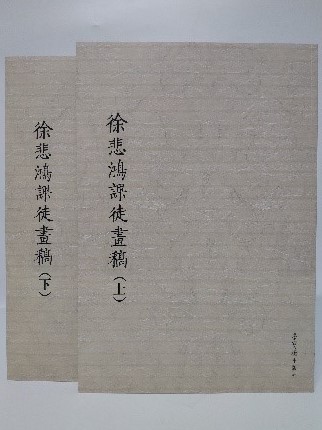 徐悲鴻課徒畫稿（上）
徐悲鴻課徒畫稿（下）